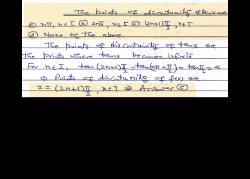 The points of discontinuity of tanx are
(a) nπ, n∈I (b) 2nπ, n∈I (c) (2n+1)π/2, n∈I
(d) None of the above
The points of discontinuity of tanx are
the points where tanx becomes infinite
For n∈I, tan(2n+1)π/2 = tan(nπ+π/2) = tanπ/2 = ∞
⇒ Points of discontinuity of
x = (2n+1)π/2, n∈I ⇒ Answer (c)